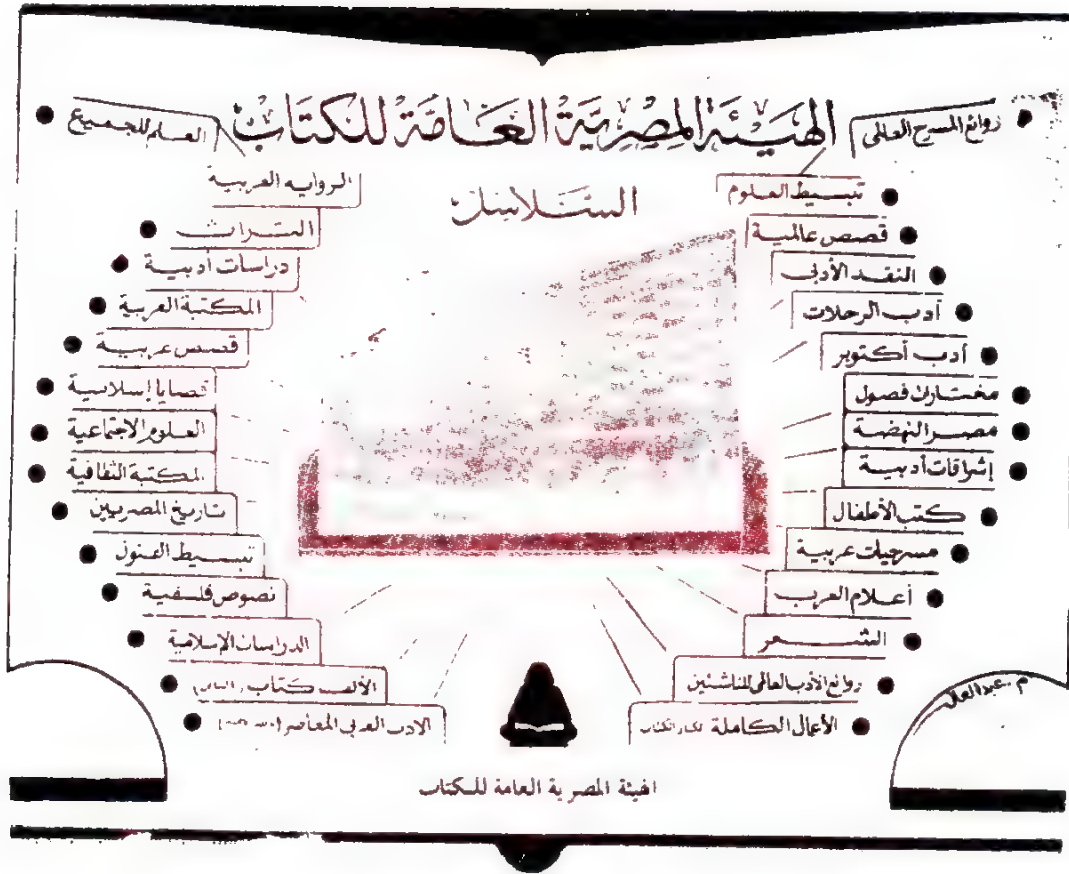 الهيئة المصرية العامة للكتاب
السلاسل
روائع المسرح العالمى
تبسيط العلوم
قصص عالمية
النقد الأدبى
أدب الرحلات
أدب أكتوبر
مختارات فصول
مصر النهضة
إشراقات أدبية
كتب الأطفال
مسرحيات عربية
أعلام العرب
الشعر
روائع الأدب العالمى للناشئين
الأعمال الكاملة لكبار الكتاب
العلم للجميع
الرواية العربية
التراث
دراسات أدبية
المكتبة العربية
قصص عربية
قضايا إسلامية
العلوم الاجتماعية
المكتبة الثقافية
تاريخ المصريين
تبسيط الفنون
نصوص فلسفية
الدراسات الإسلامية
الألف كتاب (الثانى)
الادب العربى المعاصر
م. عبدالعال
الهيئة المصرية العامة للكتاب